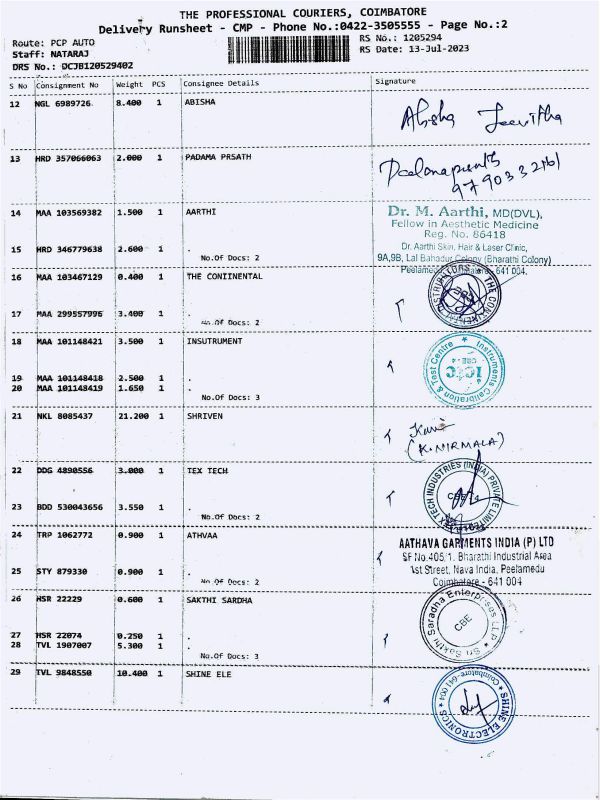 THE PROFESSIONAL COURIERS, COIMBATORE
Delivery Runsheet - CMP - Phone No.:0422-3505555 - Page No.:2
Route: PCP AUTO
Staff: NATARAJ
DRS No.: DCJB120529402
RS No.: 1205294
RS Date: 13-Jul-2023
S No Consignment No Weight PCS Consignee Details Signature
12 NGL 6989726 8.400 1 ABISHA
Abisha Jeevitha
13 HRD 357066063 2.000 1 PADAMA PRSATH
14 MAA 103569382 1.500 1 AARTHI
Dr. M. Aarthi, MD(DVL),
Fellow in Aesthetic Medicine
Reg. No. 86418
15 HRD 346779638 2.600 1 .
No.Of Docs: 2
Dr. Aarthi Skin, Hair & Laser Clinic,
9A,9B, Lal Bahadur Colony (Bharathi Colony)
641 004.
16 MAA 103467129 0.400 1 THE CONIINENTAL
17 MAA 299557996 3.400 1 .
No.Of Docs: 2
18 MAA 101148421 3.500 1 INSUTRUMENT
Instruments Calibration & Test Centre
19 MAA 101148418 2.500 1 .
20 MAA 101148419 1.650 1 .
No.Of Docs: 3
21 NKL 8085437 21.200 1 SHRIVEN
(K.NIRMALA)
22 DDG 4890556 3.000 1 TEX TECH
TEX TECH INDUSTRIES (INDIA) PRIVATE LIMITED
23 BDD 530043656 3.550 1 .
No.Of Docs: 2
24 TRP 1062772 0.900 1 ATHVAA
AATHAVA GARMENTS INDIA (P) LTD
SF No.405/1, Bharathi Industrial Area
1st Street, Nava India, Peelamedu
Coimbatore - 641 004
25 STY 879330 0.900 1 .
No Of Docs: 2
26 HSR 22229 0.600 1 SAKTHI SARDHA
Sri Sakthi Saradha Enterprises LLP
CBE
27 HSR 22074 0.250 1 .
28 TVL 1907007 5.300 1 .
No.Of Docs: 3
29 TVL 9848550 10.400 1 SHINE ELE
SHINE ELECTRONICS
Coimbatore-641 004